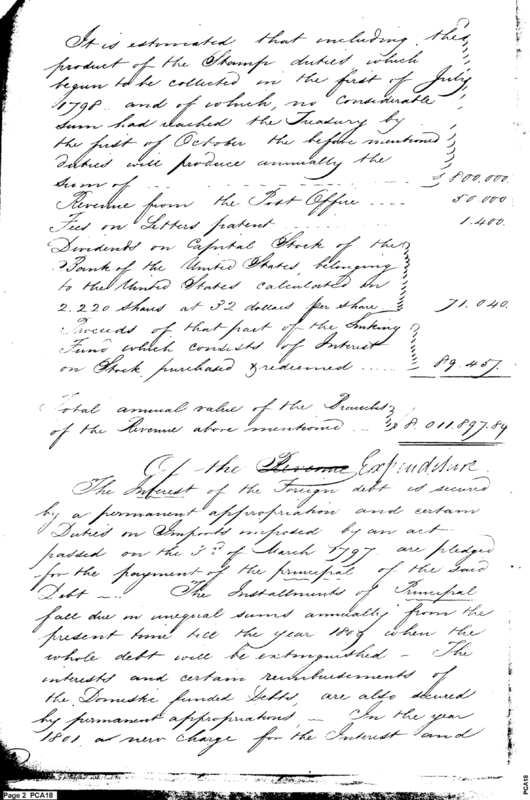 It is estimated that including the
product of the Stamp duties which
begun to be collected in the first of July
1798 and of which, no considerable
sum had reached the Treasury by
the first of October the before mentioned
duties will produce annually the
sum of . . . . . . . . . . . . 800,000.
Revenue from the Post Office .... 50 000
Fees on Letters patent . . . . . . . 1.400.
Dividends on Capital Stock of the
Bank of the United States, belonging
to the United States calculated on
2.220 shares at 32 dollars per share 71.040.
Proceeds of that part of the Sinking
Fund which consists of Interest
on Stock, purchased & redeemed ..... 89.457.
Total annual value of the Branches
of the Revenue above mentioned ... $ 8.011.897.84
Of the Revenue Expenditure.
The Interest of the Foreign debt is secured
by a permanent appropriation and certain
Duties on Imports imposed by an act
passed on the 3d of March 1797 are pledged
for the payment of the principal of the said
Debt —. The Installments of Principal
fall due in unequal sums annually from the
present time till the year when the
whole debt will be extinguished — The
interests and certain reimbursements of
the Domestic funded Debts, are also secured
by permanent appropriations, — In the year
1801 a new charge for the Interest and
Page 2 PCA18
PCA18